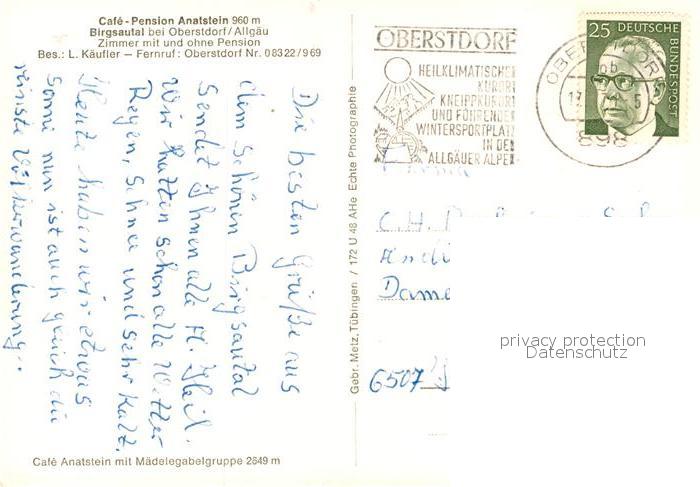 Café - Pension Anatstein 960 m
Birgsautal bei Oberstdorf/Allgäu
Zimmer mit und ohne Pension
Bes.: L. Käufler — Fernruf: Oberstdorf Nr. 08322/969
Die besten Grüße aus
dem schönen Birgsautal
sendet Ihnen alle
Wir hatten schon alle Wetter
Regen, Schnee und sehr kalt.
Heute haben wir etwas
Sonne nun ist auch gleich die
reinste Völkerwanderung..
Café Anatstein mit Mädelegabelgruppe 2649 m
Gebr. Metz, Tübingen / 172 U 48 AHe Echte Photographie
OBERSTDORF
HEILKLIMATISCHER
KURORT
KNEIPPKURORT
UND FÜHRENDER
WINTERSPORTPLATZ
IN DEN
ALLGÄUER ALPEN
OBERSTDORF
898
25 DEUTSCHE
BUNDESPOST
C.H.
Dame
6507
privacy protection
Datenschutz